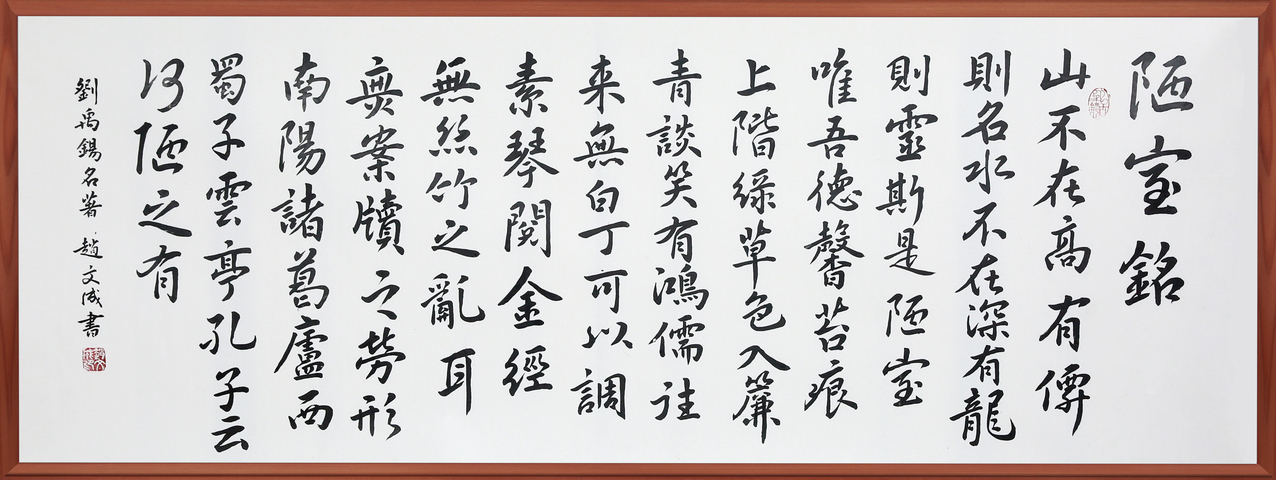 陋室銘
山不在高有僊
則名水不在深有龍
則靈斯是陋室
唯吾德馨苔痕
上階綠草色入簾
青談笑有鴻儒往
来無白丁可以調
素琴閱金經
無絲竹之亂耳
無案牘之勞形
南陽諸葛廬西
蜀子雲亭孔子云
何陋之有
劉禹錫名著 趙文成書